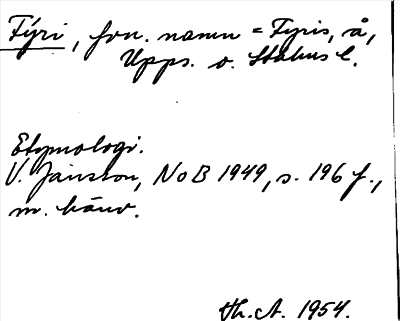 Fýri, fvn. namn = Fyris, å,
Upps. o. Sthlms l.
Etymologi.
V. Jansson, NoB 1949, s. 196 f.,
m. hänv.
Th. A. 1954.